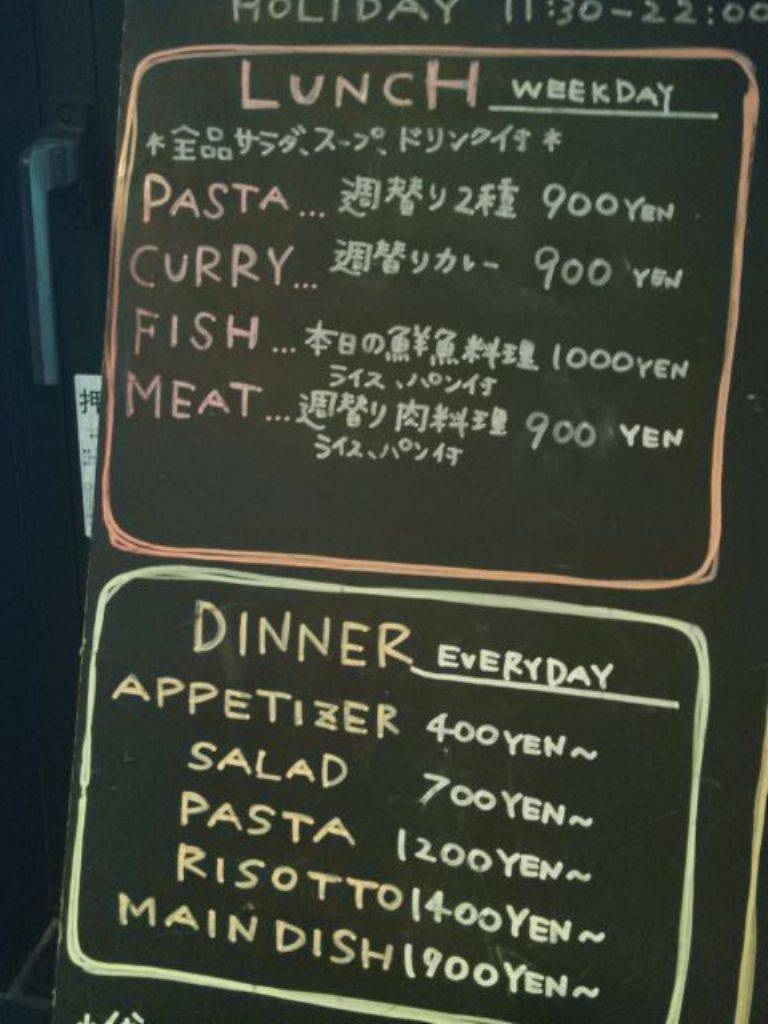 HOLIDAY 11:30-22:00
LUNCH WEEKDAY
*全品サラダ、スープ、ドリンク付*
PASTA... 週替り2種 900YEN
CURRY... 週替りカレー 900 YEN
FISH ... 本日の鮮魚料理 1000YEN
ライス、パン付
MEAT... 週替り肉料理 900 YEN
ライス、パン付
押
DINNER EVERYDAY
APPETIZER 400YEN~
SALAD 700YEN~
PASTA 1200YEN~
RISOTTO 1400YEN~
MAIN DISH 1900YEN~